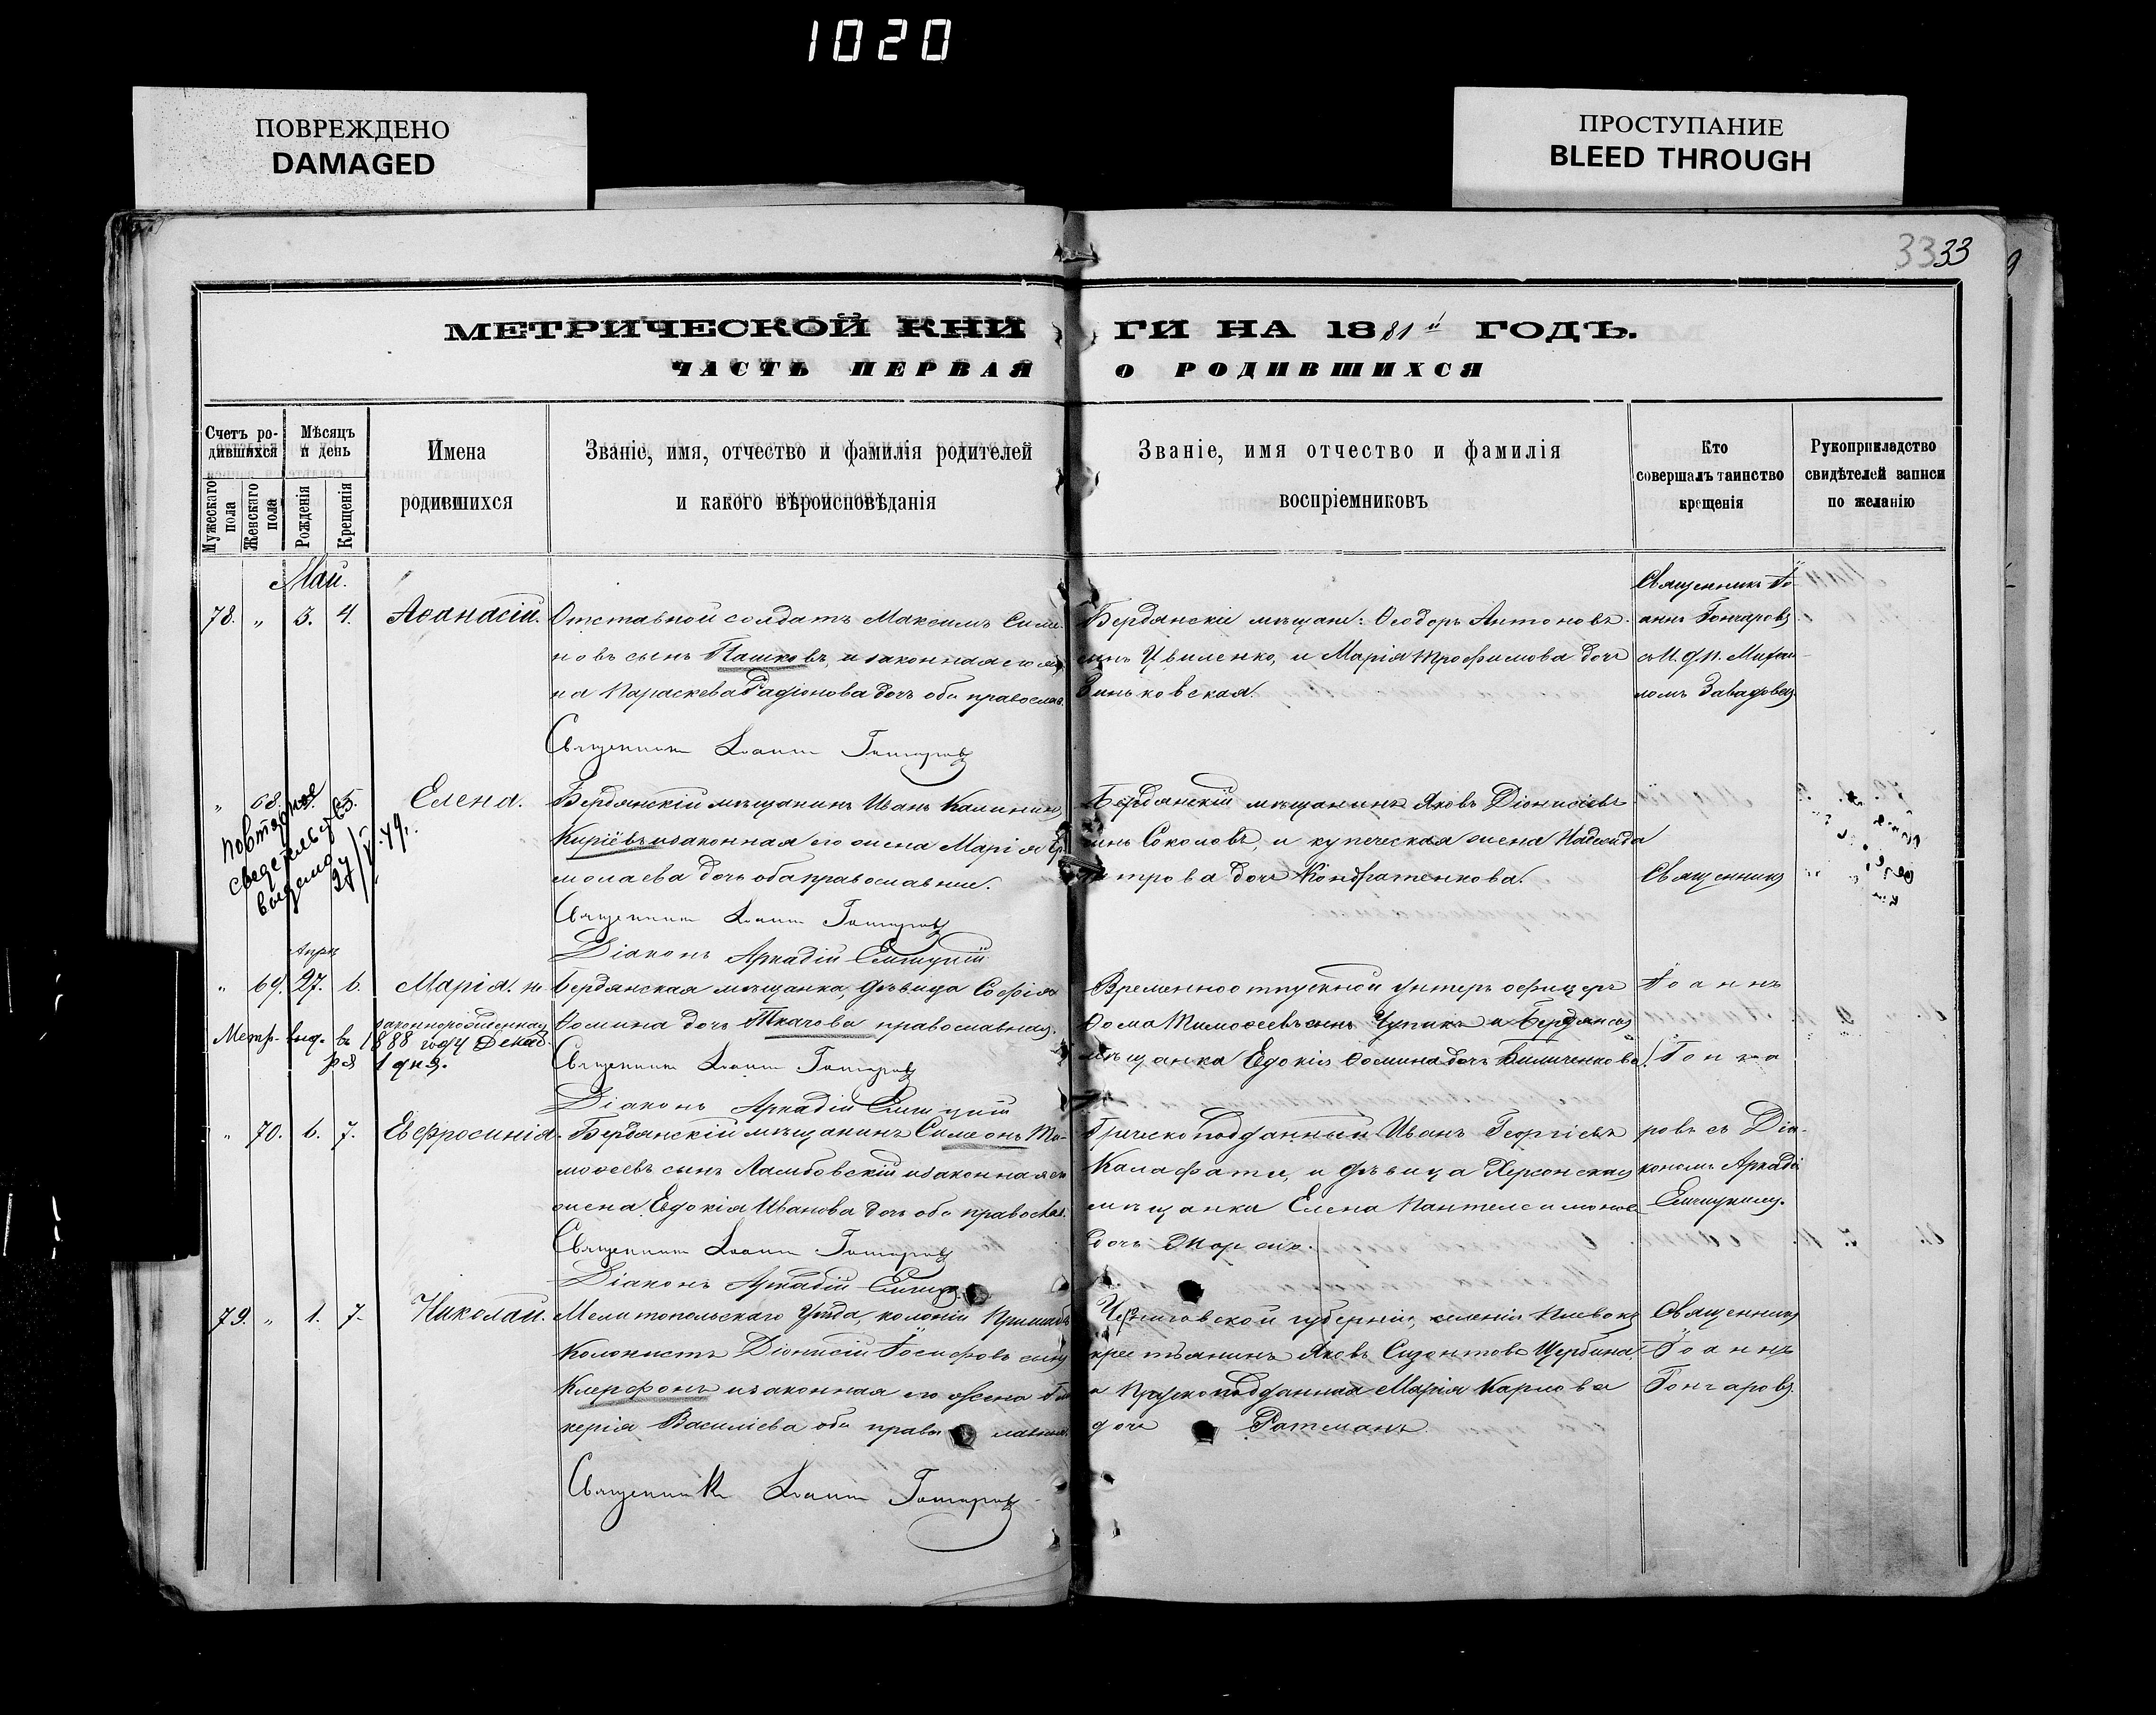 1020
ПОВРЕЖДЕНО
DAMAGED
ПРОСТУПАНИЕ
BLEED THROUGH
33 33
МЕТРИЧЕСКОЙ КНИ
ГИ НА 1881й ГОДЪ.
ЧАСТЬ ПЕРВАЯ
О РОДИВШИХСЯ
Счетъ ро-
дившихся
Мужескаго пола
Женскаго пола
Мѣсяцъ
и день
Рожденія
Крещенія
Имена
родившихся
Званіе, имя, отчество и фамилія родителей
и какого вѣроисповѣданія
Званіе, имя отчество и фамилія
воспріемниковъ
Кто
совершалъ таинство
крещенія
Рукоприкладство
свидѣтелей записи
по желанію
Май.
78. „ 3. 4. Аѳанасій.
Отставной солдатъ Максимъ Симе-
новъ сынъ Пашковъ, и законная его же-
на Параскева Радіонова дочь оба православ.
Священникъ Іоаннъ Гончаровъ
Бердянскіе мѣщане: Ѳеодоръ Антоновъ
сынъ Цвиленко, и Марія Трофимова дочь
Зиньковская.
Священникъ Іо-
аннъ Гончаровъ
съ И. д. п. Михаи-
ломъ Завадовск
„ 68. 3. 5. Елена.
повторное
свидетельство
выдано
27/V 49.
Бердянскій мѣщанинъ Иванъ Калининъ
Киріевъ и законная его жена Марія Ер-
молаева дочь оба православные.
Священникъ Іоаннъ Гончаровъ
Діаконъ Аркадій
Бердянскій мѣщанинъ Яковъ Діонисіевъ
сынъ Соколовъ, и купеческая жена Надежда
Петрова дочь Кондратенкова.
Священникъ
Апрѣ
„ 69. 27. 6. Марія. не-
законнорожденная
Метр. выд. въ 1888 году Декаб-
ря 1 дня.
Бердянская мѣщанка, дѣвица Софія
Ѳомина дочь Ткачова православная.
Священникъ Іоаннъ Гончаровъ
Діаконъ Аркадій
Временноотпускной унтеръ офицеръ
Ѳома Тимоѳеевъ сынъ Чупикъ и Бердянская
мѣщанка Евдокія Ѳомина дочь Биличенкова.
Іоаннъ
Гонча
„ 70. 6. 7. Евфросинія.
Бердянскій мѣщанинъ Симеонъ Ти-
моѳеевъ сынъ Ламбовскій и законная его
жена Евдокія Иванова дочь оба православ.
Священникъ Іоаннъ Гончаровъ
Діаконъ Аркадій
Греческоподданный Иванъ Георгіевъ
Калафати, и дѣвица Херсонская
мѣщанка Елена Пантелеимонова
дочь
ровъ съ Діа-
кономъ Аркадіе
79. „ 1. 7. Николай.
Мелитопольскаго Уѣзда, колоніи Пришибъ
Колонистъ Діонисій Іосифовъ сынъ
Клерфонъ и законная его жена Гли-
керія Васильева оба православные
Священникъ Іоаннъ Гончаровъ
Черниговской губерніи, селенія
крестьянинъ Яковъ Сизонтовъ Щербина,
и Прусскоподданная Марія Карлова
дочь Ротманъ.
Священникъ
Іоаннъ
Гончаровъ